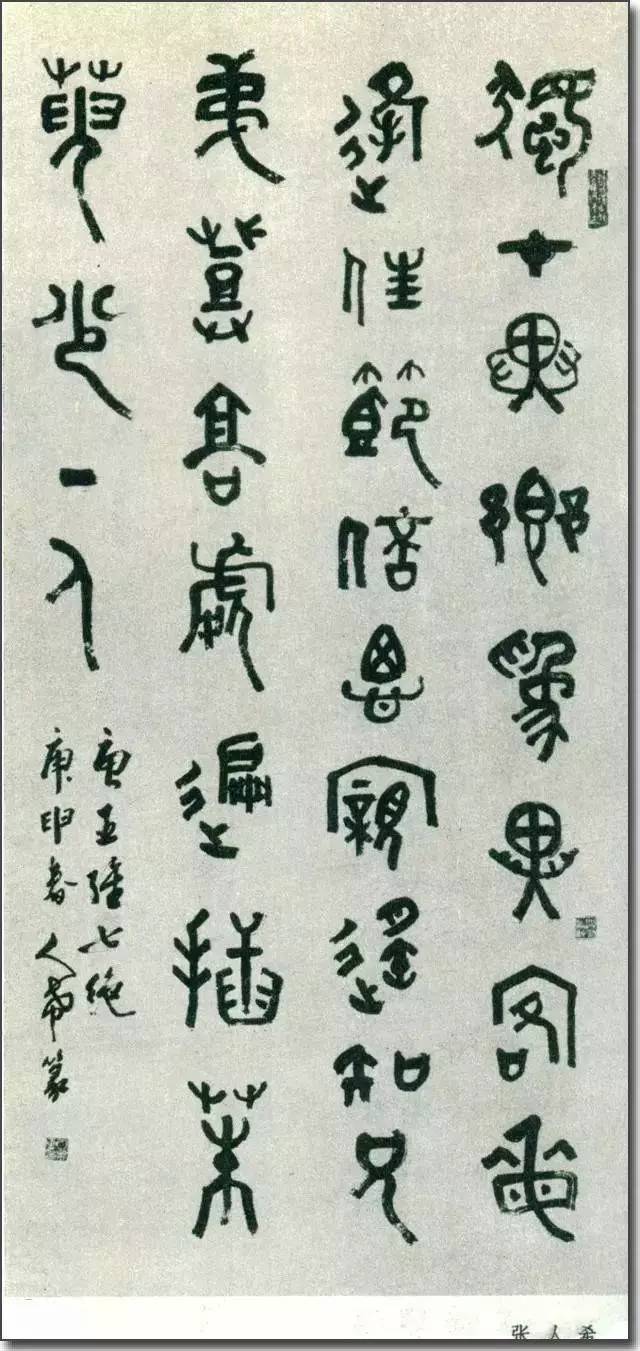 獨在異鄉為異客每
逢佳節倍思親遙知兄
弟登高處遍插茱
萸少一人
唐王維七絕
庚申春人希篆
张人希